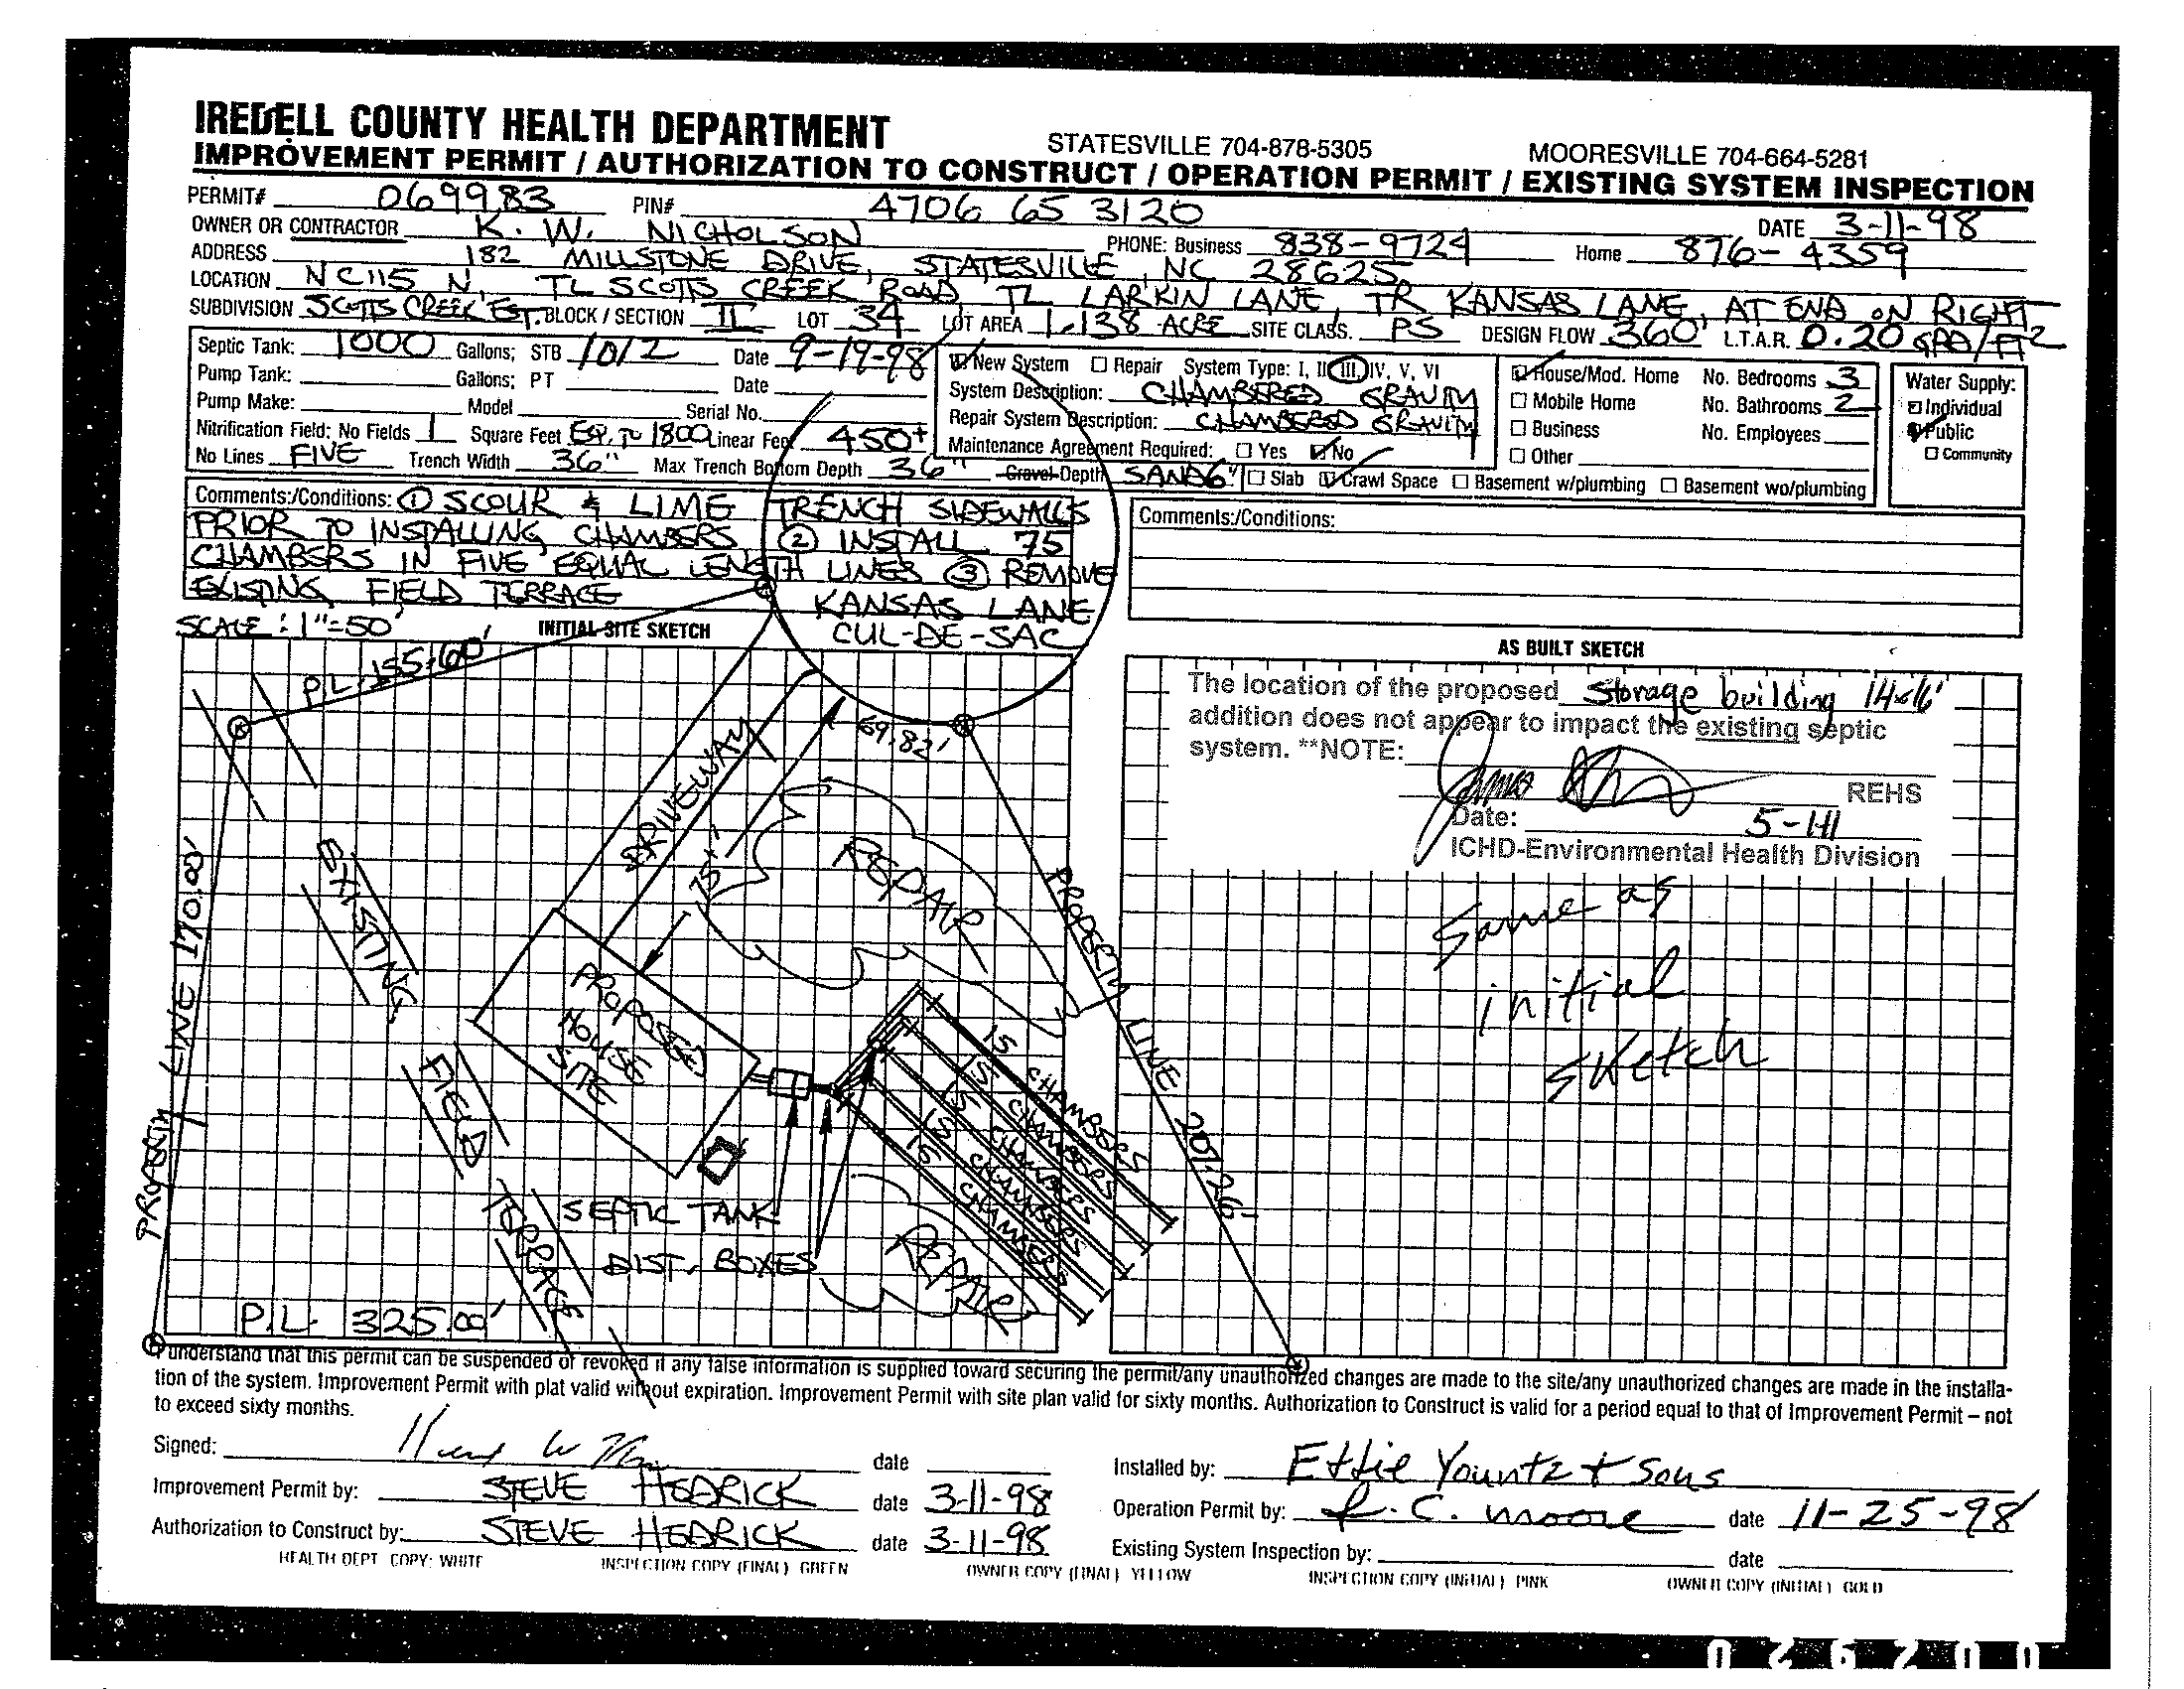 IREDELL COUNTY HEALTH DEPARTMENT
STATESVILLE 704-878-5305
MOORESVILLE 704-664-5281
IMPROVEMENT PERMIT / AUTHORIZATION TO CONSTRUCT / OPERATION PERMIT / EXISTING SYSTEM INSPECTION
PERMIT# 069983 PIN# 4706 65 3120 DATE 3-11-98
OWNER OR CONTRACTOR K. W. NICHOLSON PHONE: Business 838-9724 Home 876-4359
ADDRESS 182 MILLSTONE DRIVE, STATESVILLE, NC 28625
LOCATION NC115 N, TL SCOTTS CREEK ROAD TL LARKIN LANE, TR KANSAS LANE, AT END ON RIGHT
SUBDIVISION SCOTTS CREEK EST. BLOCK / SECTION II LOT 34 LOT AREA 1.138 ACRE SITE CLASS. PS DESIGN FLOW 360 L.T.A.R. 0.20 GPD/FT2
Septic Tank: 1000 Gallons; STB 1012 Date 9-19-98
Pump Tank: Gallons; PT Date
Pump Make: Model Serial No.
Nitrification Field: No Fields 1 Square Feet EQ. TO 1800 Linear Feet 450+
No Lines FIVE Trench Width 36" Max Trench Bottom Depth 36" Gravel Depth SAND 6"
New System Repair System Type: I, II, III, IV, V, VI
System Description: CHAMBERED GRAVITY
Repair System Description: CHAMBERED GRAVITY
Maintenance Agreement Required: Yes No
Slab Crawl Space Basement w/plumbing Basement wo/plumbing
House/Mod. Home No. Bedrooms 3
Mobile Home No. Bathrooms 2
Business No. Employees
Other
Water Supply:
Individual
Public
Community
Comments:/Conditions: ① SCOUR & LIME TRENCH SIDEWALLS
PRIOR TO INSTALLING CHAMBERS ② INSTALL 75
CHAMBERS IN FIVE EQUAL LENGTH LINES ③ REMOVE
EXISTING FIELD TERRACE
Comments:/Conditions:
KANSAS LANE
CUL-DE-SAC
SCALE: 1"=50'
INITIAL SITE SKETCH
P.L. 155.60'
69.82'
DRIVEWAY
75+'
REPAIR
PROPERTY LINE 207.26'
PROPERTY LINE 170.00'
EXISTING FIELD TERRACE
PROPOSED
HOUSE
SITE
15 CHAMBERS
15 CHAMBERS
15 CHAMBERS
15 CHAMBERS
15 CHAMBERS
SEPTIC TANK
DIST. BOXES
REPAIR
P.L. 325.00'
AS BUILT SKETCH
The location of the proposed Storage building 14x16'
addition does not appear to impact the existing septic
system. **NOTE:
REHS
Date:
ICHD-Environmental Health Division
Same as
initial
sketch
I understand that this permit can be suspended or revoked if any false information is supplied toward securing the permit/any unauthorized changes are made to the site/any unauthorized changes are made in the installa-
tion of the system. Improvement Permit with plat valid without expiration. Improvement Permit with site plan valid for sixty months. Authorization to Construct is valid for a period equal to that of Improvement Permit – not
to exceed sixty months.
Signed: date
Improvement Permit by: STEVE HEDRICK date 3-11-98
Authorization to Construct by: STEVE HEDRICK date 3-11-98
Installed by: Ettie Yountz + Sons
Operation Permit by: R. C. Moore date 11-25-98
Existing System Inspection by: date
HEALTH DEPT COPY: WHITE INSPECTION COPY (FINAL) GREEN OWNER COPY (FINAL) YELLOW INSPECTION COPY (INITIAL) PINK OWNER COPY (INITIAL) GOLD